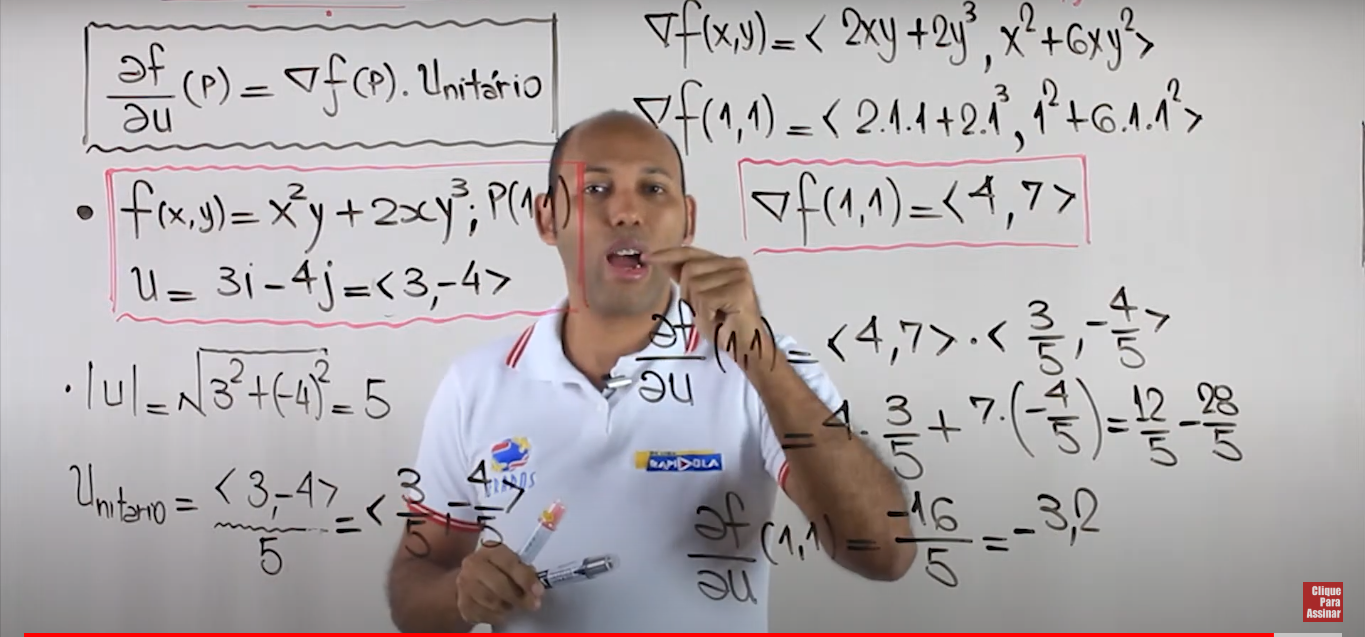 ∂f/∂u (P) = ∇f(P). Unitário
f(x,y) = x²y + 2xy³; P(1,1)
u = 3i - 4j = <3,-4>
. |u| = √(3²+(-4)²) = 5
Unitário = <3,-4>/5 = <3/5, -4/5>
∇f(x,y) = < 2xy + 2y³, x² + 6xy² >
∇f(1,1) = < 2.1.1 + 2.1³, 1² + 6.1.1² >
∇f(1,1) = <4,7>
∂f/∂u (1,1) = <4,7> . < 3/5, -4/5 >
= 4. 3/5 + 7.(-4/5) = 12/5 - 28/5
∂f/∂u (1,1) = -16/5 = -3,2
Clique
Para
Assinar